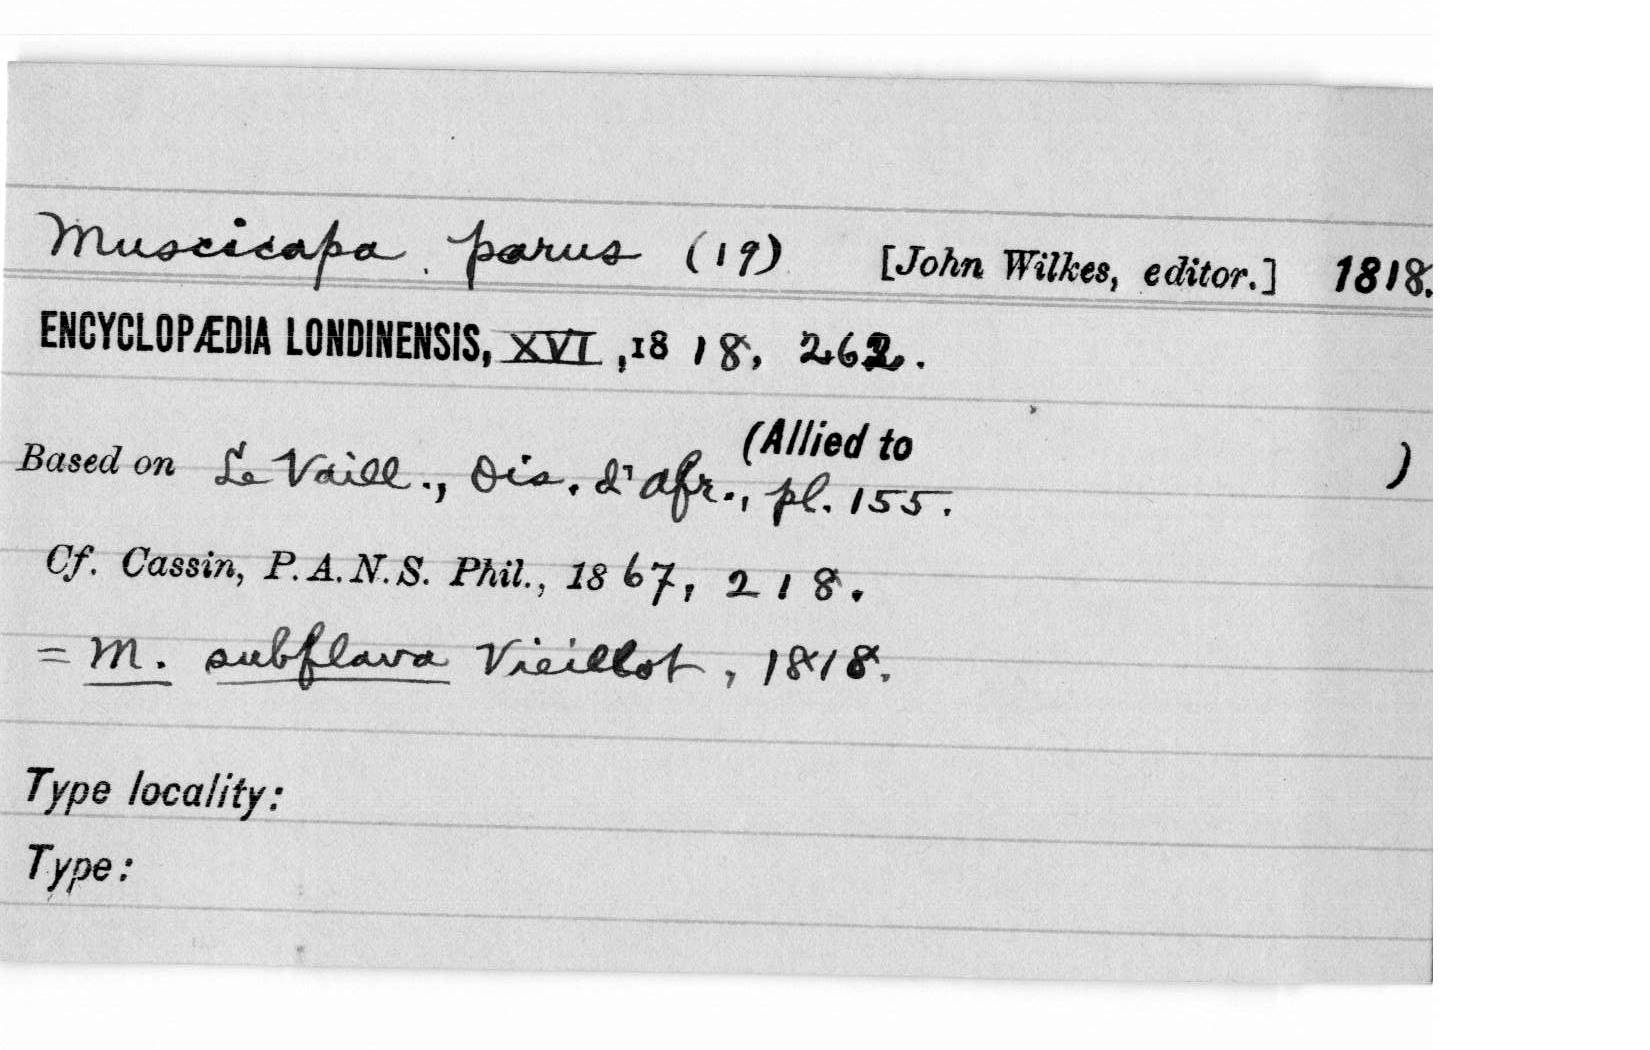 Muscicapa parus (19) [John Wilkes, editor.] 1818.
ENCYCLOPÆDIA LONDINENSIS, XVI, 1818, 262.
(Allied to )
Based on Le Vaill., Ois. d'Afr., pl. 155.
Cf. Cassin, P. A. N. S. Phil., 1867, 218.
= M. subflava Vieillot, 1818.
Type locality:
Type: